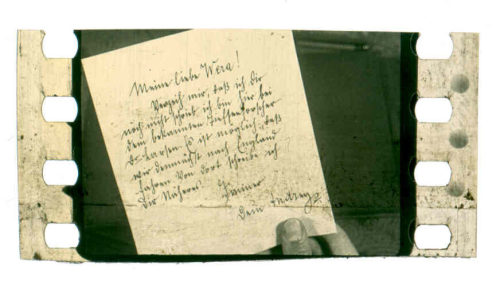 Meine liebe Wera!
Verzeih mir, daß ich dir
noch nicht schrieb ich bin hier bei
dem bekannten
Dr. Larsen Es ist möglich, daß
wir demnächst nach England
fahren Von dort schreibe ich
dir Näheres Immer
Dein Andrey